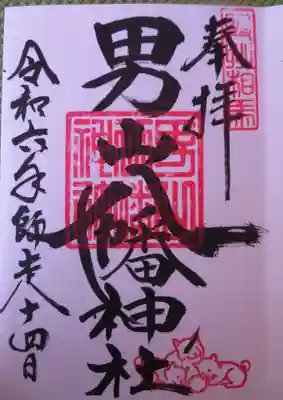 奉拝
男山八幡神社
令和六年師走十四日